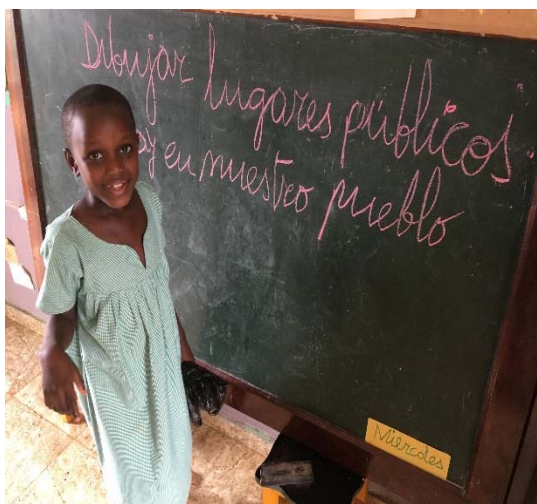 Dibujar lugares públicos
en nuestro pueblo
Miercoles